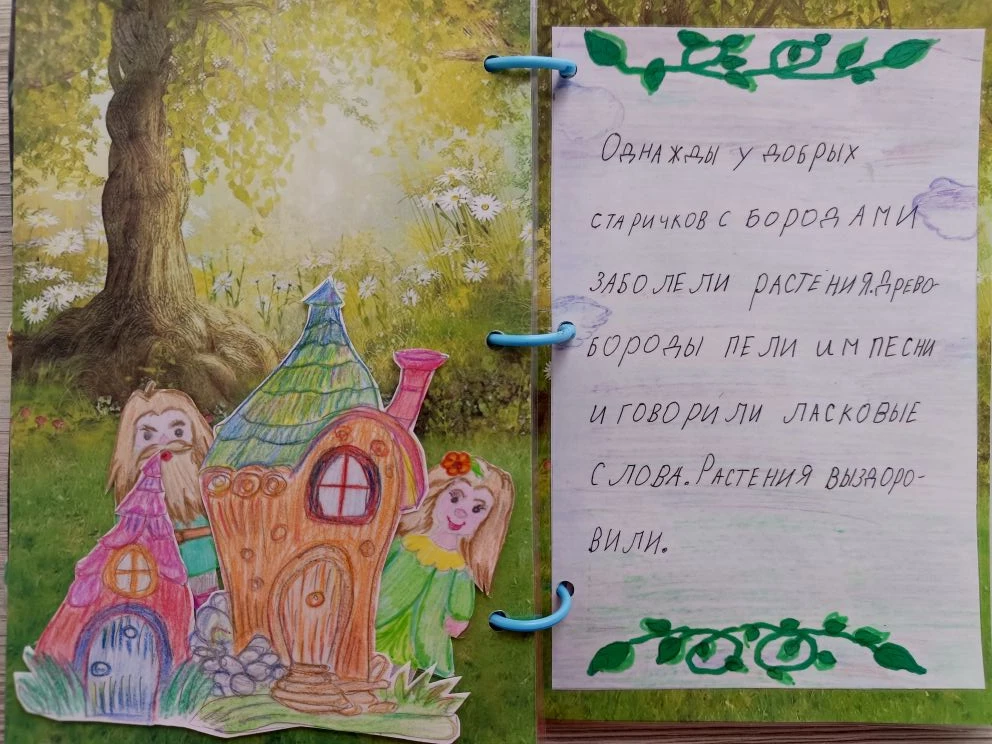 Однажды у добрых
старичков с бородами
заболели растения.Древо-
бороды пели им песни
и говорили ласковые
слова.Растения выздоро-
вили.